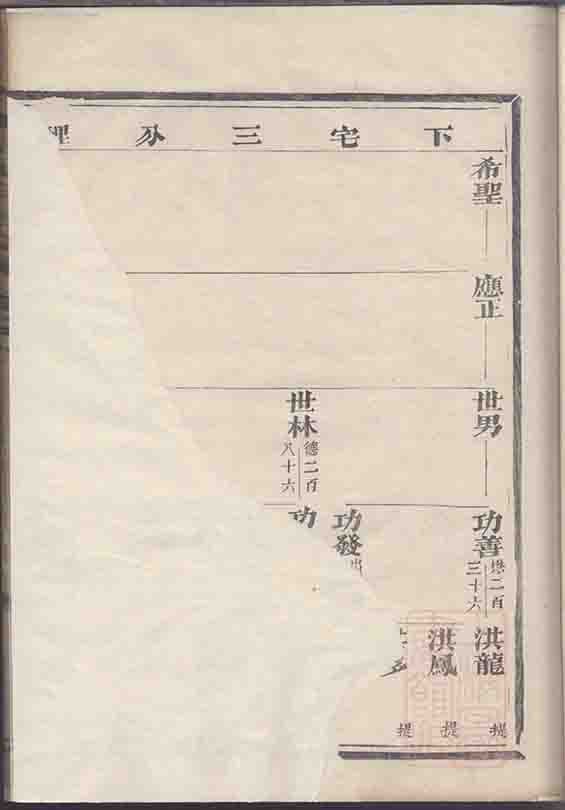 下宅三
希聖
應正
世男
功善
二百
三十六
洪龍
提
洪鳳
提
功發
提
世林
德二百
八十六
功